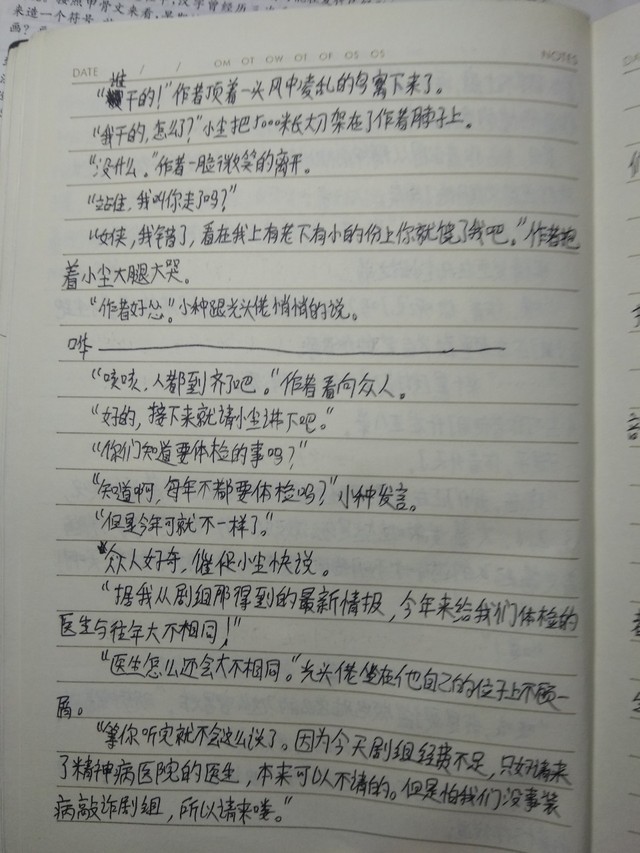 来造一个符号
画？
DATE / / OM OT OW OT OF OS OS NOTES
“谁干的！”作者顶着一头风中凌乱的鸟窝下来了。
“我干的，怎么了？”小尘把5000米长大刀架在了作者脖子上。
“没什么。”作者一脸微笑的离开。
“站住，我叫你走了吗？”
“女侠，我错了，看在我上有老下有小的份上你就饶了我吧。”作者抱
着小尘大腿大哭。
“作者好怂。”小种跟光头佬悄悄的说。
哗
“咳咳，人都到齐了吧。”作者看向众人。
“好的，接下来就请小尘讲下吧。”
“你们知道要体检的事吗？”
“知道啊，每年不都要体检吗？”小种发言。
“但是今年可就不一样了。”
众人好奇，催促小尘快说。
“据我从剧组那得到的最新情报，今年来给我们体检的
医生与往年大不相同！”
“医生怎么还会大不相同。”光头佬坐在他自己的位子上不顾一
屑。
“等你听完就不会这么说了。因为今天剧组经费不足，只好请来
了精神病医院的医生，本来可以不请的。但是怕我们没事装
病敲诈剧组，所以请来喽。”